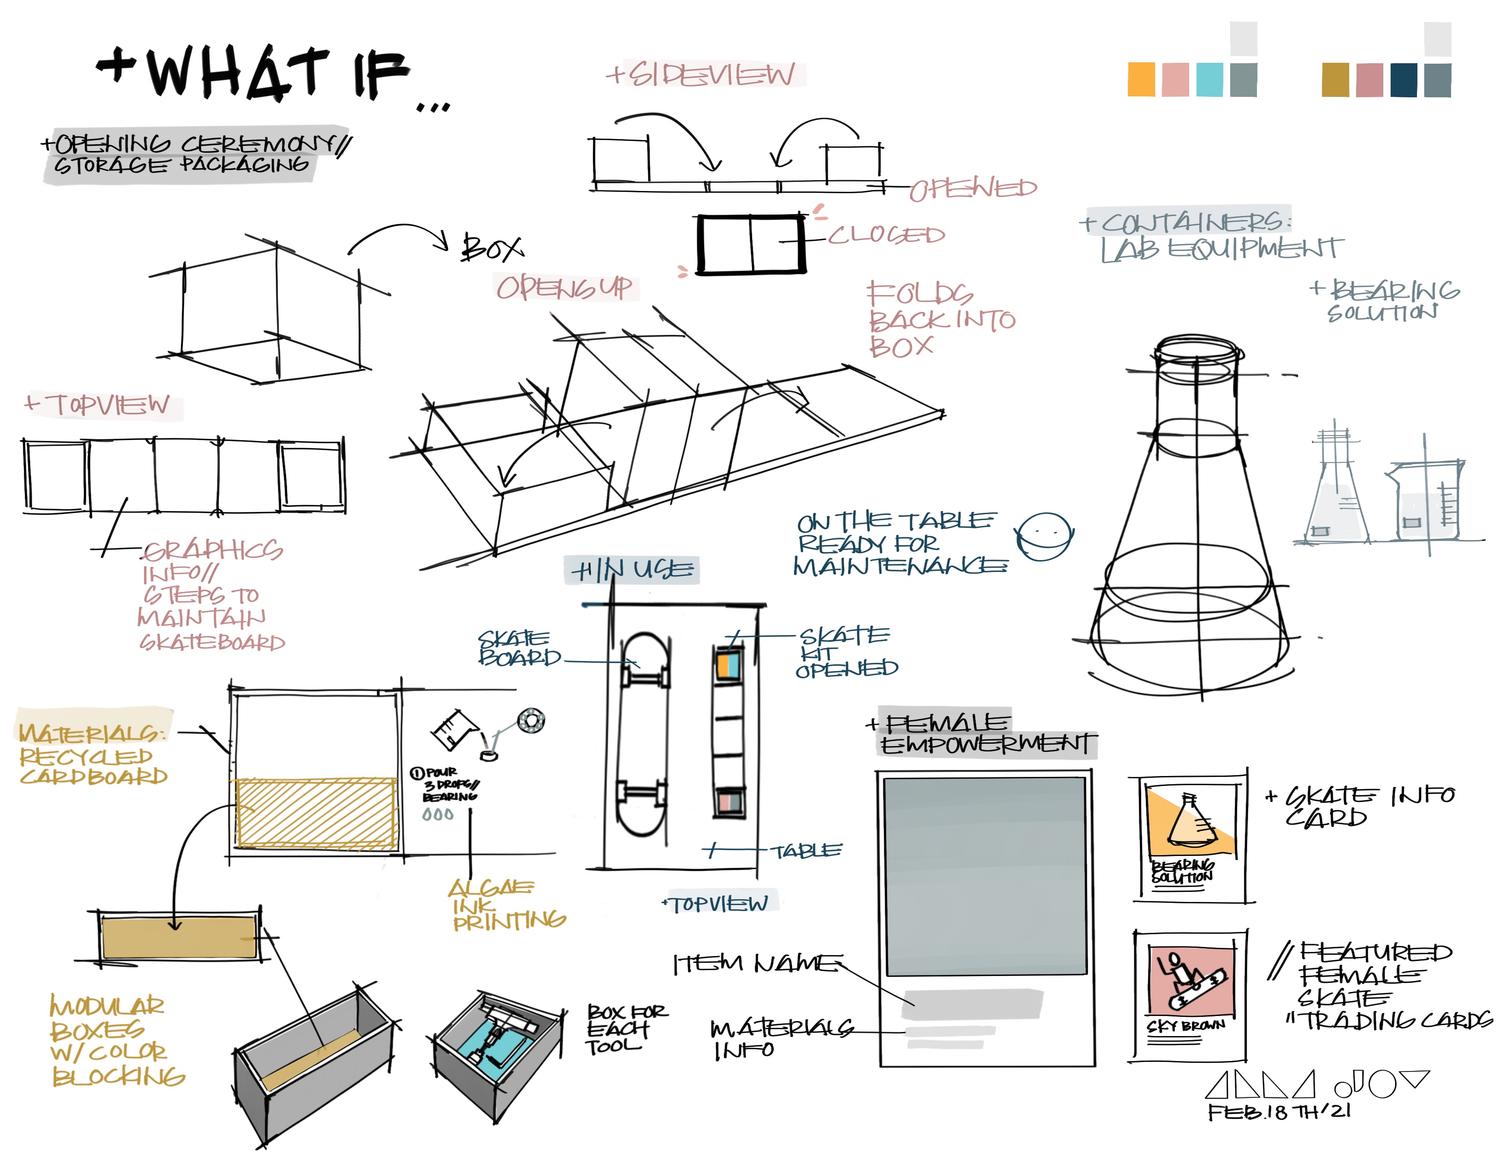 +WHAT IF...
+OPENING CEREMONY//
STORAGE PACKAGING
+SIDEVIEW
OPENED
CLOSED
BOX
OPENS UP
FOLDS
BACK INTO
BOX
+CONTAINERS:
LAB EQUIPMENT
+BEARING
SOLUTION
+TOPVIEW
GRAPHICS
INFO//
STEPS TO
MAINTAIN
SKATEBOARD
ON THE TABLE
READY FOR
MAINTENANCE
+IN USE
SKATE
BOARD
SKATE
KIT
OPENED
TABLE
+TOPVIEW
MATERIALS:
RECYCLED
CARDBOARD
① POUR
3 DROPS//
BEARING
ALGAE
INK
PRINTING
MODULAR
BOXES
W/ COLOR
BLOCKING
BOX FOR
EACH
TOOL
+FEMALE
EMPOWERMENT
ITEM NAME
MATERIALS
INFO
BEARING
SOLUTION
+ SKATE INFO
CARD
SKY BROWN
// FEATURED
FEMALE
SKATE
"TRADING CARDS
FEB.18TH/21